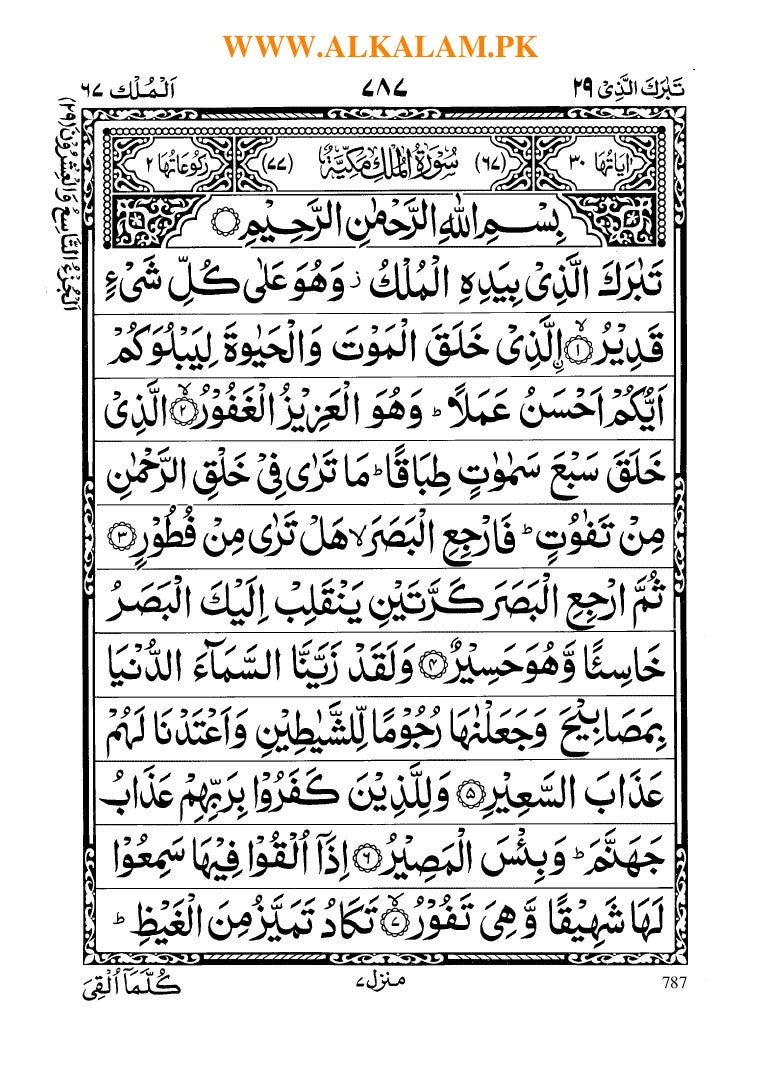 WWW.ALKALAM.PK
تَبٰرَكَ الَّذِیْ ۲۹
۷۸۷
اَلْمُلْك ۶۷
اَلْجُزْءُ التَّاسِعُ وَالْعِشْرُوْنَ (۲۹)
اٰيَاتُهَا ۳۰ (۶۷) سُوْرَةُ الْمُلْكِ مَكِّيَّةٌ (۷۷) رُكُوْعَاتُهَا ۲
بِسْمِ اللّٰهِ الرَّحْمٰنِ الرَّحِيْمِ ○
تَبٰرَكَ الَّذِیْ بِيَدِهِ الْمُلْكُ ز وَهُوَ عَلٰی كُلِّ شَیْءٍ
قَدِيْرُ ۙ﴿۱﴾ ۨالَّذِیْ خَلَقَ الْمَوْتَ وَالْحَيٰوةَ لِيَبْلُوَكُمْ
اَيُّكُمْ اَحْسَنُ عَمَلًا ؕ وَهُوَ الْعَزِيْزُ الْغَفُوْرُ ۙ﴿۲﴾ الَّذِیْ
خَلَقَ سَبْعَ سَمٰوٰتٍ طِبَاقًا ؕ مَا تَرٰی فِیْ خَلْقِ الرَّحْمٰنِ
مِنْ تَفٰوُتٍ ؕ فَارْجِعِ الْبَصَرَ ۙ هَلْ تَرٰی مِنْ فُطُوْرٍ ﴿۳﴾
ثُمَّ ارْجِعِ الْبَصَرَ كَرَّتَيْنِ يَنْقَلِبْ اِلَيْكَ الْبَصَرُ
خَاسِئًا وَّهُوَ حَسِيْرٌ ﴿۴﴾ وَلَقَدْ زَيَّنَّا السَّمَآءَ الدُّنْيَا
بِمَصَابِيْحَ وَجَعَلْنٰهَا رُجُوْمًا لِّلشَّيٰطِيْنِ وَاَعْتَدْنَا لَهُمْ
عَذَابَ السَّعِيْرِ ﴿۵﴾ وَلِلَّذِيْنَ كَفَرُوْا بِرَبِّهِمْ عَذَابُ
جَهَنَّمَ ؕ وَبِئْسَ الْمَصِيْرُ ﴿۶﴾ اِذَآ اُلْقُوْا فِيْهَا سَمِعُوْا
لَهَا شَهِيْقًا وَّهِیَ تَفُوْرُ ۙ﴿۷﴾ تَكَادُ تَمَيَّزُ مِنَ الْغَيْظِ ؕ
787
منزل ۷
كُلَّمَآ اُلْقِیَ